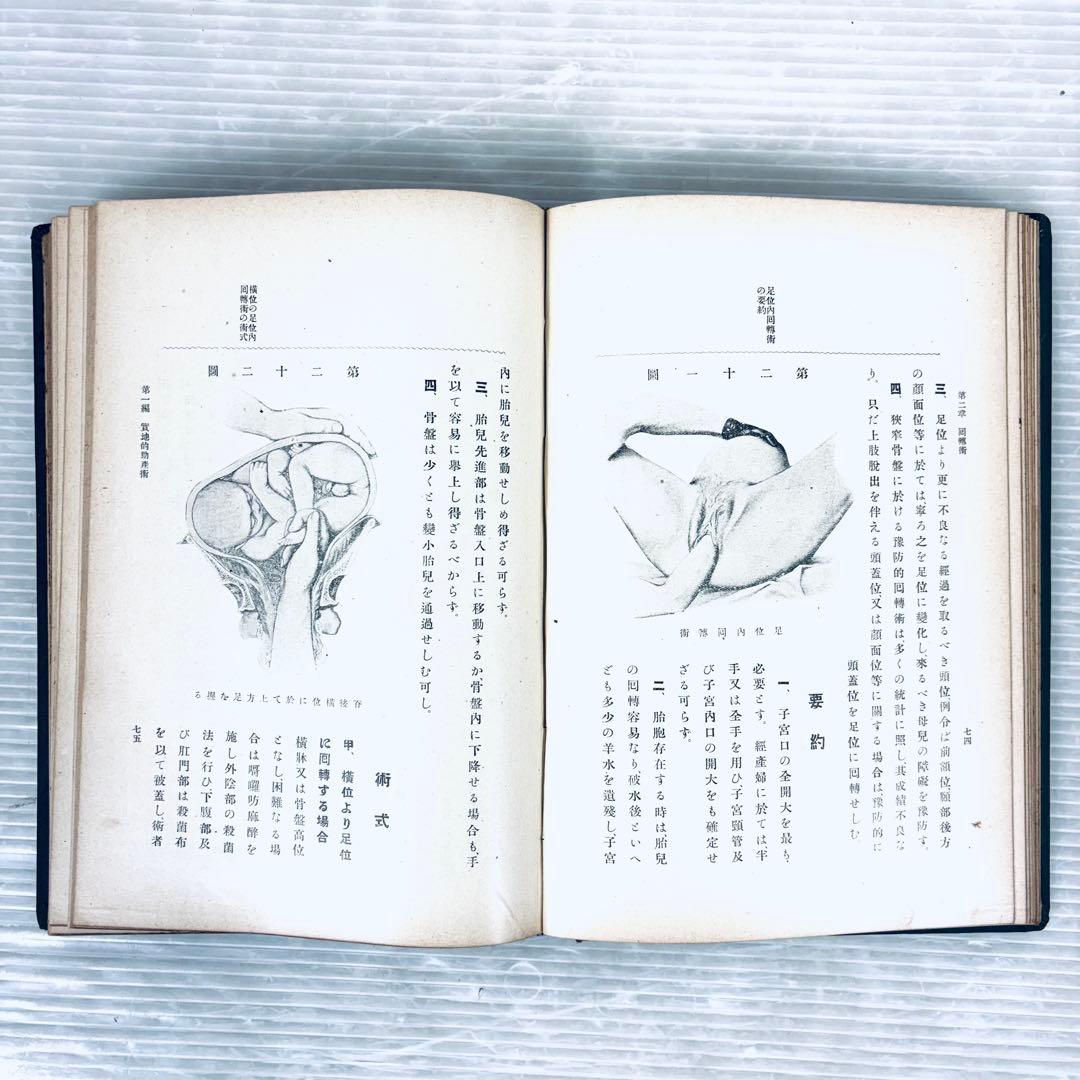 足位內囘轉術
の要約
第二章　囘轉術
三、足位より更に不良なる經過を取るべき頭位例令ば前額位、頤部後方
の顏面位等に於ては、寧ろ之を足位に變化し、來るべき母兒の障礙を豫防す。
四、狹窄骨盤に於ける豫防的囘轉術は、多くの統計に照し、其成績不良な
り。只だ上肢脫出を伴える頭蓋位、又は顏面位等に關する場合は豫防的に
頭蓋位を足位に囘轉せしむ。
第二十一圖
足位內囘轉術
要約
一、子宮口の全開大を最も
必要とす。經產婦に於ては半
手又は全手を用ひ子宮頸管及
び子宮內口の開大をも確定せ
ざる可らず。
二、胎胞存在する時は、胎兒
の囘轉容易なり破水後といへ
ども多少の羊水を遺殘し、子宮
七四
橫位の足位內
囘轉術の術式
內に胎兒を移動せしめ得ざる可らず。
三、胎兒先進部は骨盤入口上に移動するか、骨盤內に下降せる場合も、手
を以て容易に擧上し得ざるべからず。
四、骨盤は少くとも變小胎兒を通過せしむ可し。
第二十二圖
脊後橫位に於て上方足を握る
術式
甲、橫位より足位
に囘轉する場合
橫牀又は骨盤高位
となし、困難なる場
合は嚼囉昉麻醉を
施し外陰部の殺菌
法を行ひ下腹部及
び肛門部は殺菌布
を以て被蓋し、術者
第一編　實地的助產術
七五